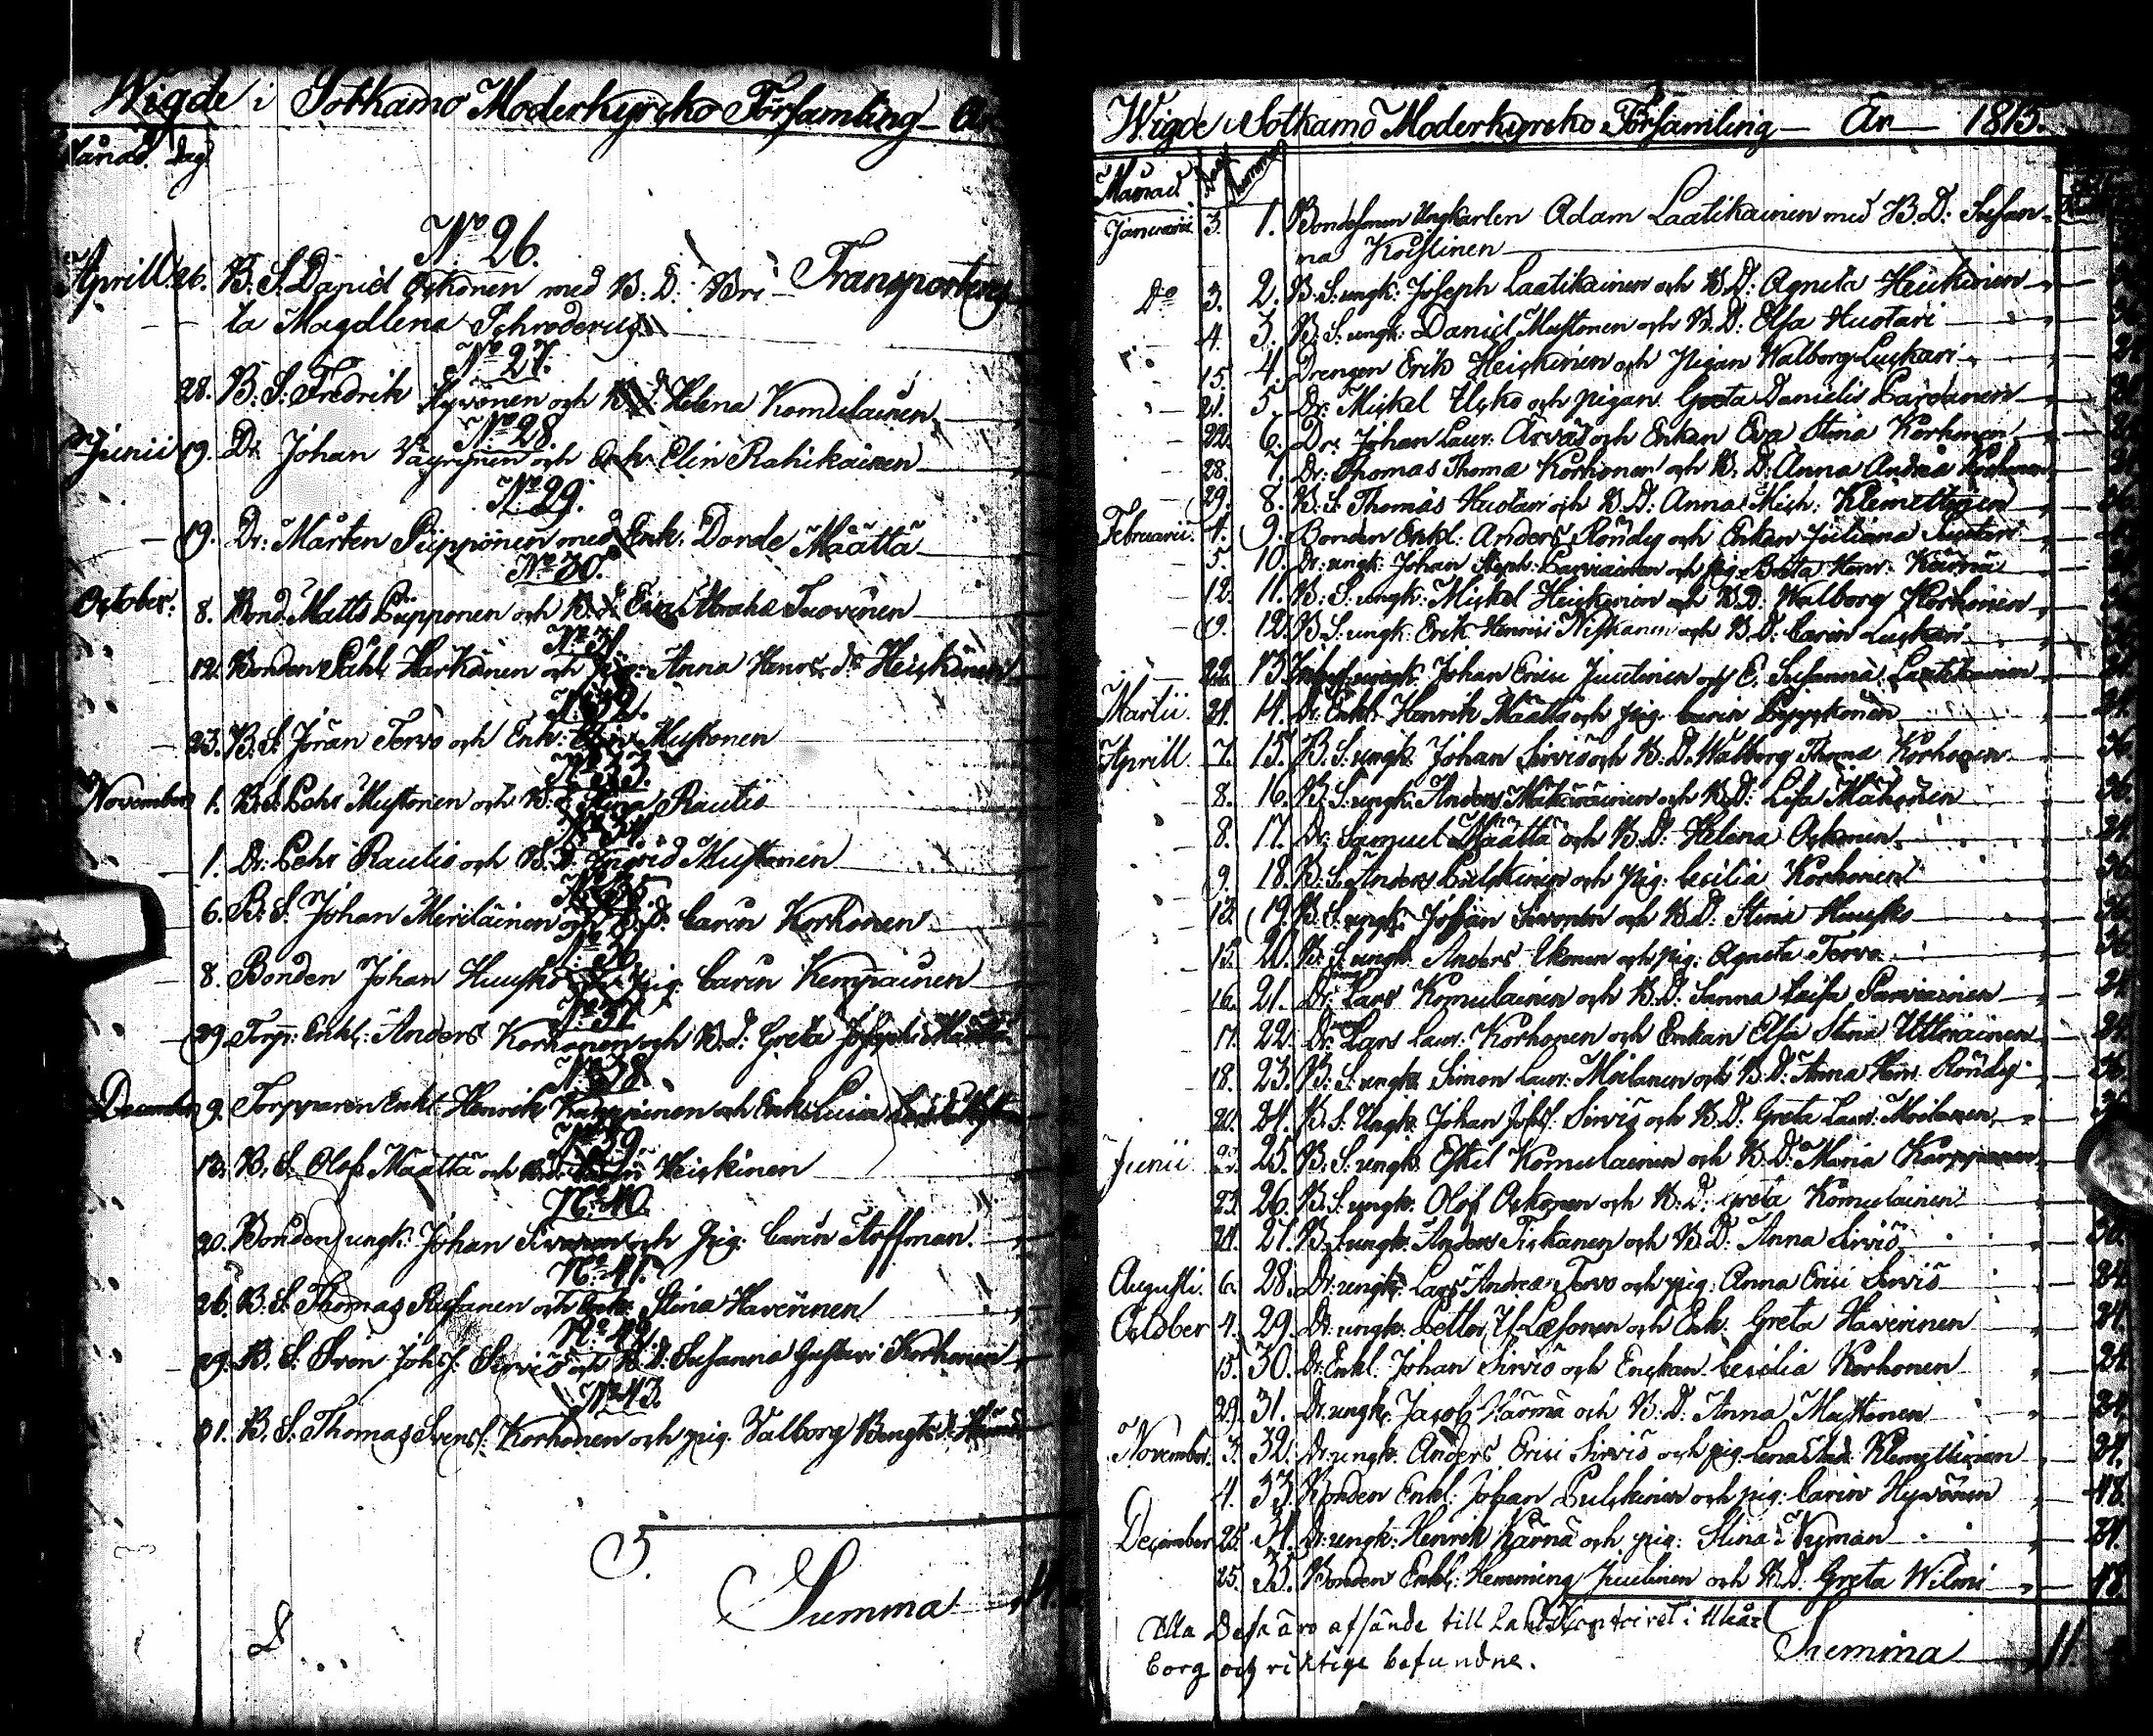 Wigde i Sotkamo Moderkyrcko Församling
Månad. Dag
No 26.
Aprill 26. B. S. David Oikonen med B. D. Bri- Transporteras
ta Magdlena Schroderus
No 27.
28. B. S. Fredrik Hyvönen och Helena Komulainen
No 28
Junii 19. Dr. Johan Väyrynen och Enk. Elin Rahikainen
No 29.
19. Dr. Mårten Piipponen med Enk. Darde Määttä
No 30.
October. 8. Bond. Matts Piipponen och B. D. Eva Abrahd. Tuovinen
No 31
12. Bonden Påhl Harkönen och Pig. Anna Henrs. dr Heiskinen
No 32.
23. B. S. Jöran Tervo och Enk. Mustonen
No 33.
November 1. B. S. Pehr Mustonen och B. D. Stina Rautio
No 34
1. Dr. Pehr Rautio och B. D. Ingrid Mustonen
No 35.
6. B. S. Johan Meriläinen och B. D. Carin Korhonen
No 36.
8. Bonden Johan Huusko och Pig. Carin Kemppainen
No 37
29. Torp. Enkl. Anders Korhonen och B. D. Greta Josephsd.
No 38.
December 9. Torpparen Enkl. Henrik Karppinen och Enk. Lucia
No 39
13. B. S. Olof Määttä och B. D. Heiskinen
No 40.
20. Bonden ungk. Johan Sivonen och Pig. Carin Aoffman.
No 41.
26. B. S. Thomas Rusanen och Enk. Stina Haverinen
No 42
29. B. S. Sven Johs. Sirviö och B. D. Susanna Gustavi Korhonen
No 43.
31. B. S. Thomas Svens. Korhonen och pig. Valborg Bengts d.
S.
Summa
Wigde i Sotkamo Moderkyrcko Församling — År — 1815.
Månad Dag Nummer
Januarii 3. 1. Bondesonen Ungkarlen Adam Laatikainen med B. D: Susan-
na Koistinen
Do 3. 2. B. S. ungk: Joseph Laatikainen och B. D: Agneta Heickinen
4. 3. B. S. ungk: Daniel Mustonen och B. D: Elsa Huotari
15. 4. Drengen Erik Heiskinen och Pigan Walborg Luckari 24
21. 5. Dr: Mickel Ucko och pigan Greta Danielis Pardanen
22. 6. Dr: Johan Laur: Arvas och Enkan Eva Stina Korhonen 24
28. 7. Dr: Thomas Thomæ Korhonen och B. D: Anna Andreæ Korhonen
29. 8. B. S. Thomas Huotari och B. D: Anna Mich: Klemettinen 36
Februarii 4. 9. Bonden Enkl: Anders Röndy och Enkan Juliana Huotari
5. 10. Dr: ungk: Johan Steph: Parviainen och pig. Brita Henr: Kärnä
12. 11. B. S. ungk: Mickel Heiskinen och B. D: Walborg Korhonen
19. 12. B. S. ungk: Erik Henrici Niskanen och B. D: Carin Luckari
22. 13. ungk: Johan Erici Juutinen och E. Susanna Laatikainen 24
Martii. 21. 14. Dr: Enkl: Henrik Määttä och pig. Carin Pyykkönen 24
Aprill 7. 15. B. S. ungk. Johan Sirviö och B. D. Walborg Thomæ Korhonen 36
8. 16. B. S. ungk: Anders Matäräinen och B. D: Lisa Mähönen 36.
8. 17. Dr: Samuel Määttä och B. D: Helena Oikonen 24.
9. 18. B. S. Anders Pulckinen och pig: Cecilia Korhonen 36
13. 19. B. S. ungk: Johan Sivonen och B. D: Stina Huusko 36
15. 20. B. S. ungk. Anders Ikonen och pig: Agneta Tervo 36
16. 21. Dr: ungk: Lars Komulainen och B. D: Sanna Caisa Parviainen 24
17. 22. Dr: Lars Laur: Korhonen och Enkan Elsa Stina Uttriainen 24.
18. 23. B. S. ungk. Simon Laur: Moilanen och B. D: Anna Henr: Röndy 36.
20. 24. B. S. Ungk. Johan Johs: Sirviö och B. D: Greta Laur: Moilanen 36
Junii 23. 25. B. S. ungk. Eskil Komulainen och B. D: Maria Karppinen
23. 26. B. S. ungk. Olof Oikonen och B. D: Greta Komulainen
24. 27. B. S. ungk: Anders Tickanen och B. D: Anna Sirviö 36.
Augusti. 6. 28. Dr: ungk: Lars Andreæ Tervo och pig: Anna Erici Sirviö 24
October 4. 29. Dr: ungk: Petter Ulf Læsonen och Enk. Greta Haverinen 24.
15. 30. Dr. Enkl. Johan Sirviö och Enckan Cecilia Korhonen 24
29. 31. Dr. ungk. Jacob Kärnä och B. D: Anna Mustonen 24.
November. 3. 32. Dr: ungk: Anders Erici Sirviö och pig. Lena Klemettinen 24.
4. 33. Bonden Enkl: Johan Pulckinen och pig: Carin Hyvönen 48.
December 25. 34. Dr: ungk: Henrik Kärnä och pig: Stina Nyman 24.
25. 35. Bonden Enkl: Hemming Juutinen och B. D: Greta Wilmi 48.
Alla Desa äro afsände till LandsContoiret i Uleå
borg och riktige befundne.
Summa 11.